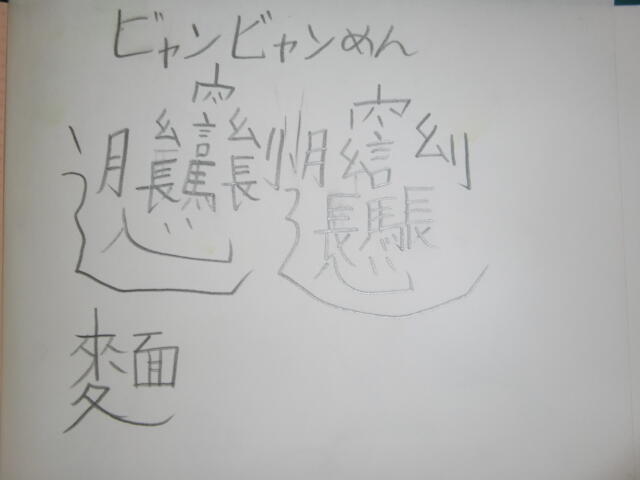 ビャンビャンめん
𰻞𰻞
麵